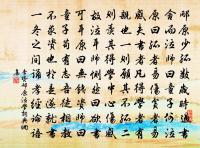 邴原少孤數歲時過書
舍而泣師曰童子何泣
原曰孤者易傷貧者易
感夫書者凡得學者有
親也一則願其不孤二
則羨其得學中心傷感
故泣耳師惻然曰欲書
可耳原曰無錢資師曰
童子苟有志吾徒相教
不求資也於是遂就書
一冬之間誦孝經論語